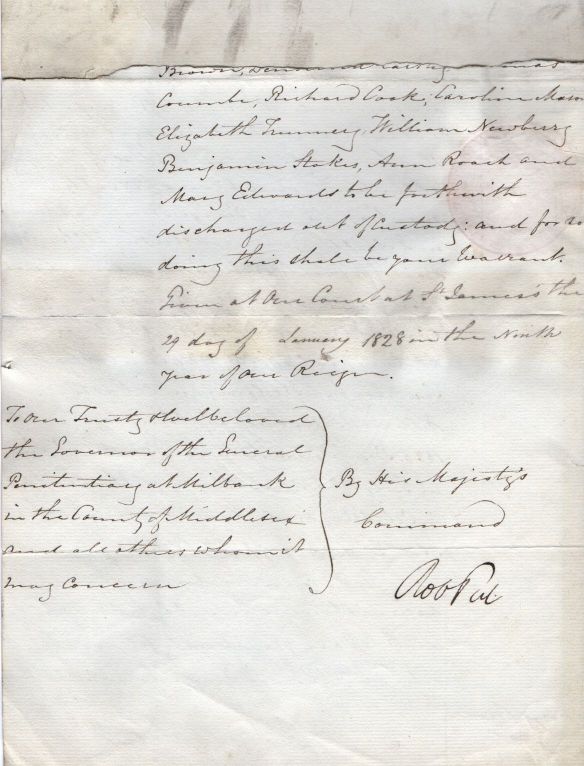 Brown,
Coumbe, Richard Cook, Caroline Mason
Elizabeth Trunnery, William Newberry
Benjamin Stokes, Ann Roach and
Mary Edwards to be forthwith
discharged out of Custody: and for so
doing this shall be your Warrant.
Given at Our Court at St James's the
29 day of January 1828 in the Ninth
Year of Our Reign.
To Our Trusty & Welbeloved
the Governor of the General
Penitentiary at Milbank
in the County of Middlesex
and all others whom it
may concern
By His Majesty's
Command
Rob Peel